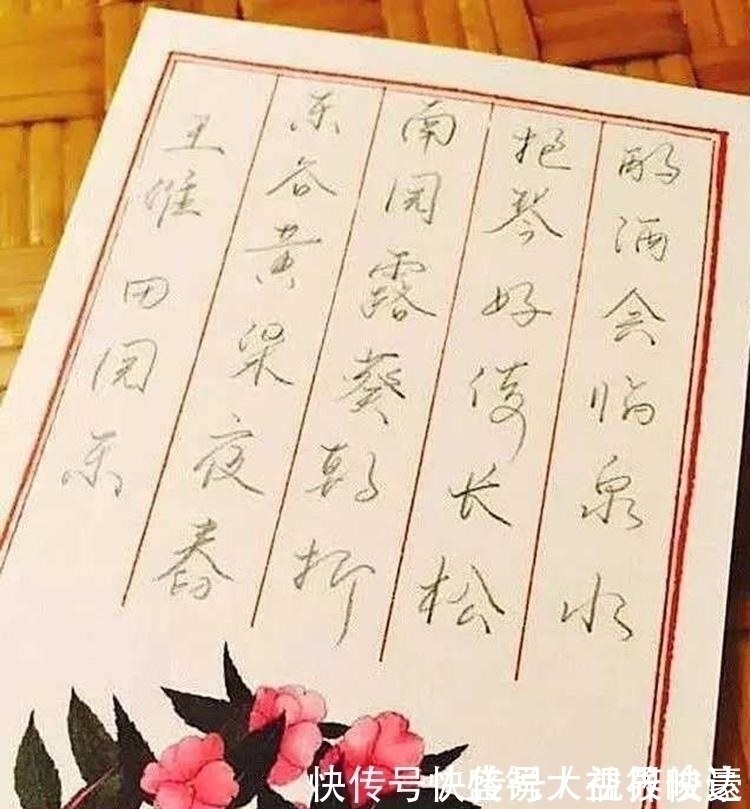 酌酒会临泉水
抱琴好倚长松
南园露葵朝折
东谷黄粱夜舂
王维 田园乐
快传号